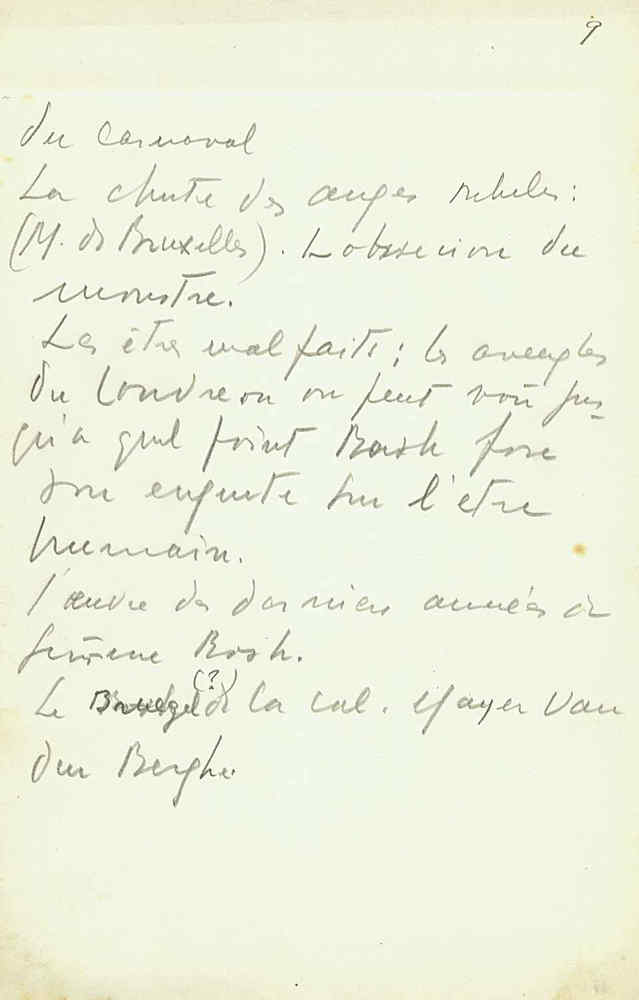 9
du carnaval
La chute des anges rebeles :
(M. de Bruxelles). L'obsession du
monstre.
Les êtres mal faits ; les aveugles
du Londre on peut voir jus-
qu'a quel point Bosh
son enquete sur l'etre
humain.
l'œuvre des dernieres années de
Jerome Bosh.
Le Bruegel (?) de la col. Mayer Van
den Berghe